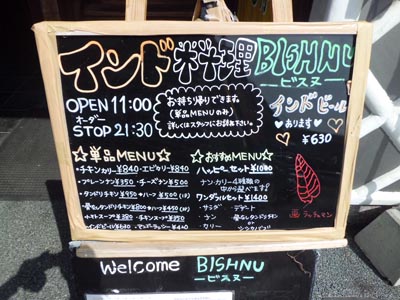 インド料理BISHNU
ービスヌー
OPEN 11:00
オーダー
STOP 21:30
お持ち帰りできます。
(単品MENUのみ)
詳しくはスタッフにお尋ね下さい。
インドビール
♡あります♡
¥630
☆単品MENU☆
・チキンカリー¥840・エビカリー¥890
・プレーンナン¥350・チーズナン¥500
・タンドリチキン¥950
・ホットスープ¥380・チキンスープ¥350
・インドビール¥630
☆おすすめMENU☆
ハッピーセット¥1000
ナン・カリー4種類の
中から選べます。
ワンダフルセット¥1400
・サラダ・デザート
・ナン
・カリー
Welcome BISHNU
ービスヌー